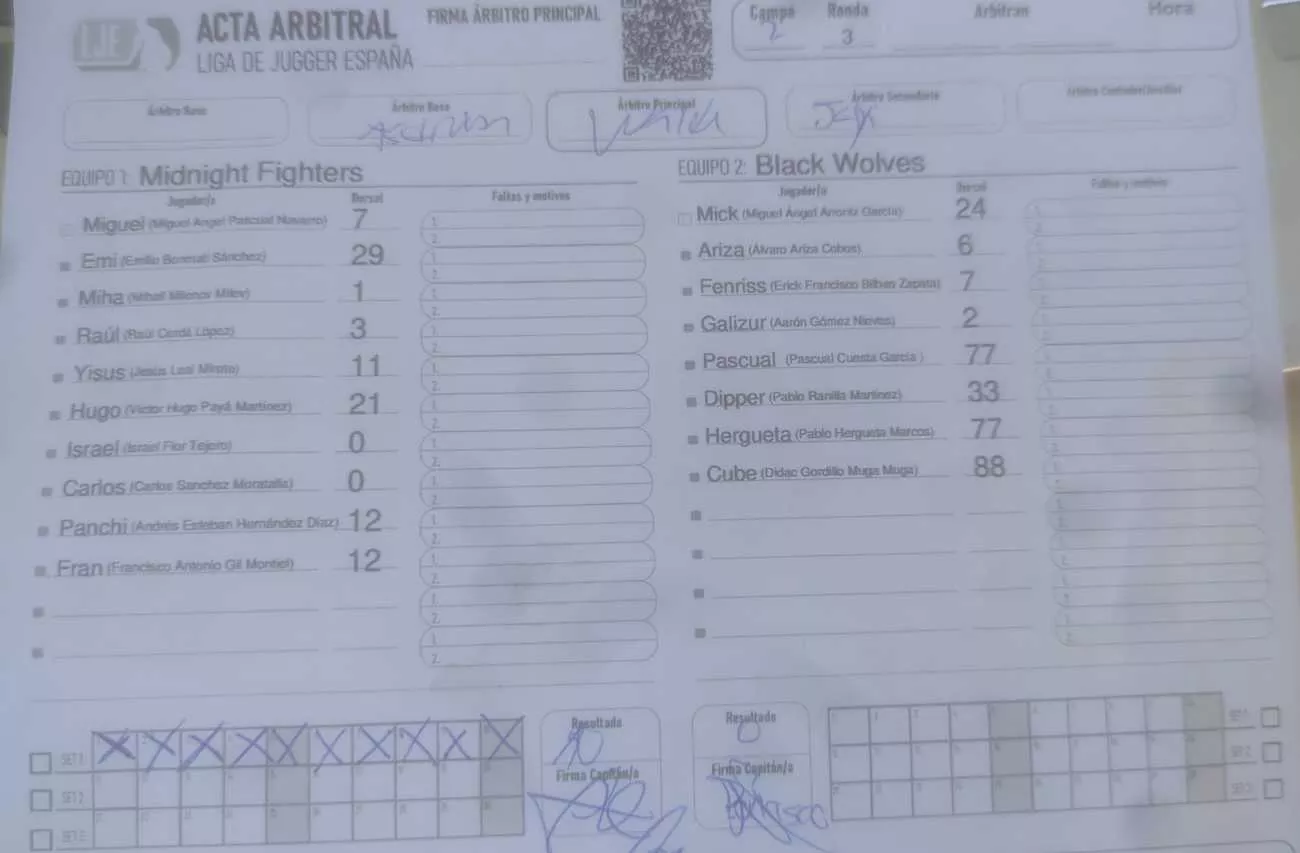 LJE
ACTA ARBITRAL
LIGA DE JUGGER ESPAÑA
FIRMA ÁRBITRO PRINCIPAL
Campo Ronda Arbitran Hora
2 3
Árbitro Base Árbitro Base Árbitro Principal Árbitro Secundario
EQUIPO 1: Midnight Fighters
Jugador/a Dorsal Faltas y motivos
Miguel (Miguel Angel Pascual Navarro) 7 1. 2.
Emi (Emilio Sánchez) 29 1. 2.
Miha (Mihail Milenov Milev) 1 1. 2.
Raúl (Raúl Cerdá López) 3 1. 2.
Yisus (Jesús Leal) 11 1. 2.
Hugo (Víctor Hugo Payá Martínez) 21 1. 2.
Israel (Israel Flor Tejero) 0 1. 2.
Carlos (Carlos Sanchez Moratalla) 0 1. 2.
Panchi (Andrés Esteban Hernández Díaz) 12 1. 2.
Fran (Francisco Antonio Gil Montiel) 12 1. 2.
1. 2.
1. 2.
EQUIPO 2: Black Wolves
Jugador/a Dorsal Faltas y motivos
Mick (Miguel Ángel García) 24
Ariza (Álvaro Ariza Cobos) 6
Fenriss (Erick Francisco Bilbao Zapata) 7
Galizur (Aarón Gómez Nieves) 2
Pascual (Pascual Cuesta García) 77
Dipper (Pablo Ranilla Martínez) 33
Hergueta (Pablo Hergueta Marcos) 77
Cube (Didac Gordillo Muga Muga) 88
SET 1
SET 2
SET 3
Resultado
10
Firma Capitán/a
Resultado
0
Firma Capitán/a
SET 1
SET 2
SET 3